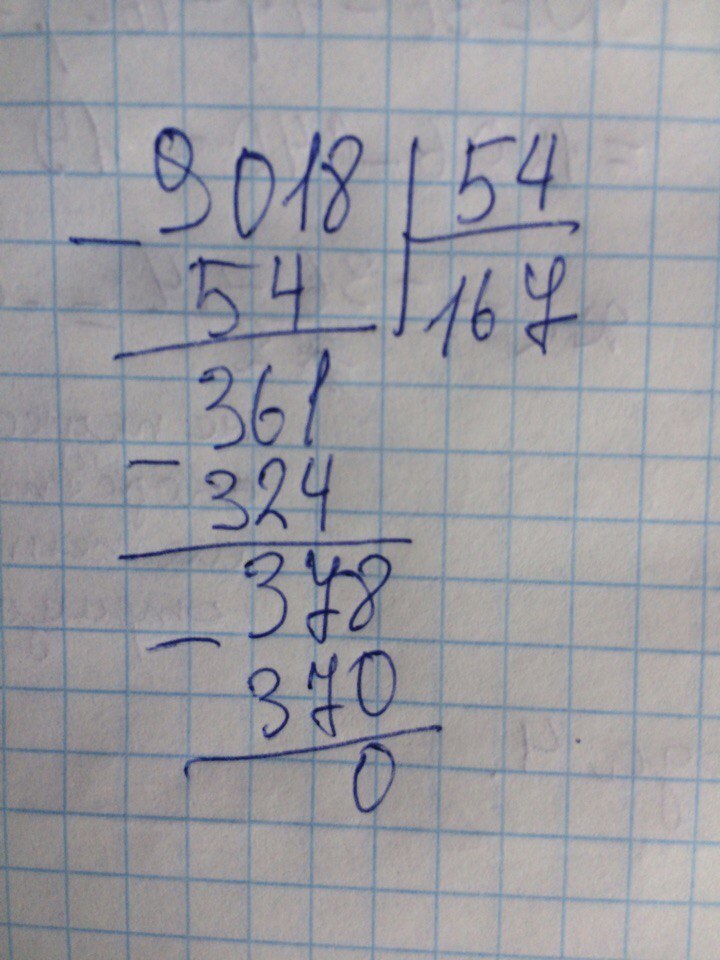 9018 | 54
- 54 | 167
361
- 324
378
- 370
0